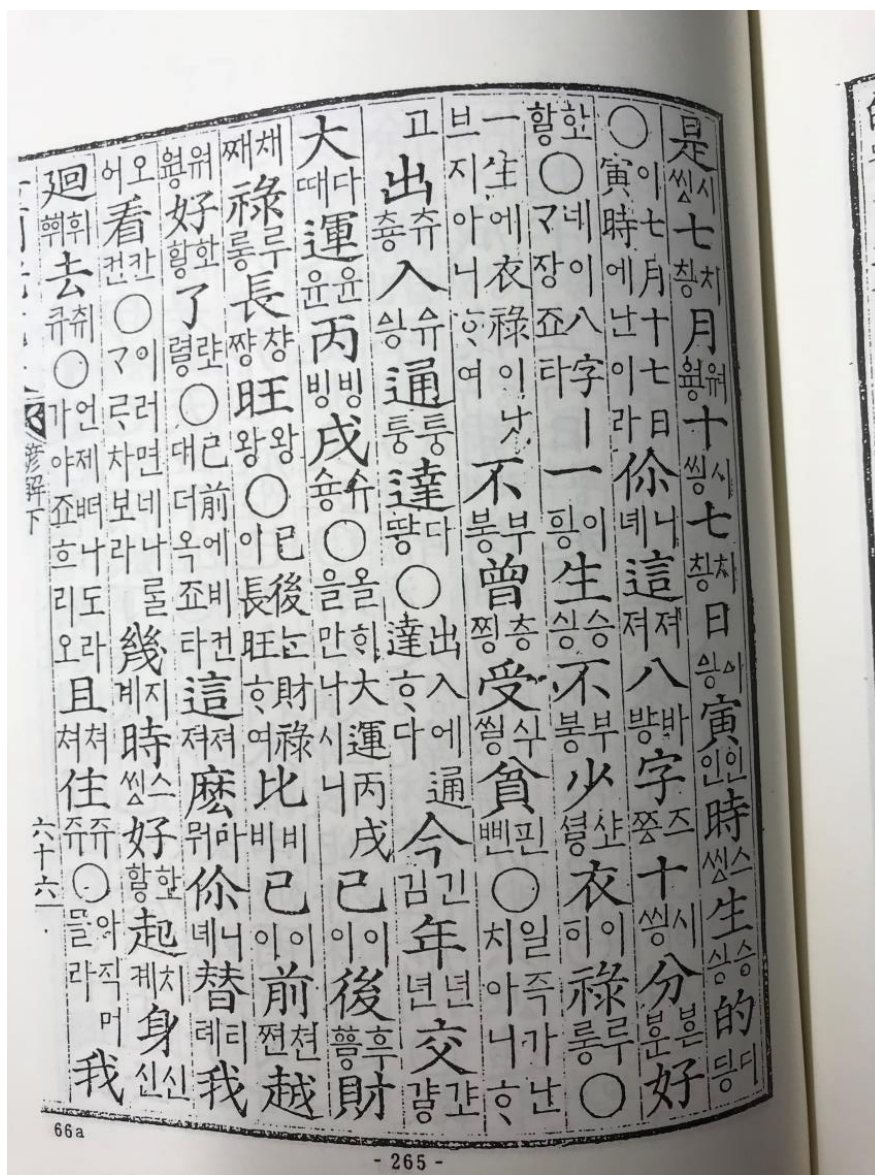 是씽시七칭치月웡워十씽시七칭치日싕시寅인인時씽스生싕승的딍디
○이七月十七日寅時에난이라伱녜니這져져八방바字쯩즈十씽시分분븐好
핳핲○네이八字ㅣᄀᆞ장죠타一ᅙᅵᆼ이生싕승不붕부少셯샾衣ᅙᅵ이祿롱루○
一生에衣祿이낫브지아니ᄒᆞ여不붕부曾찡층受씧싀貧삔핀○일즉가난치아니ᄒᆞ
고出츙츄入ᅀᅵᆼ유通퉁퉁達땋다○出入에通達ᄒᆞ다今김긴年년년交걓갸
大때다運윤윤丙빙빙戌슝슈○올ᄒᆡ大運丙戌을만나시니已이이後ᅘᅳᇢ후財
째채祿롱루長쨩챵旺왕왕○已後ᄂᆞᆫ財祿이長旺ᄒᆞ여比비비已이이前쪈쳔越
웡워好핳핲了렿랖○已前에비컨대더옥죠타這져져麽뭐마伱녜니替톄티我
어오看컨칸○이러면네나ᄅᆞᆯᄀᆞᄅᆞ차보라幾계지時씽스好핳핲起켸치身신신
廻ᅘᅱ휘去큐취○언제ᄠᅥ나도라가야죠흐리오且쳐쳐住쮸쥬○아직머믈라我
諺解下
六十六
66a
- 265 -